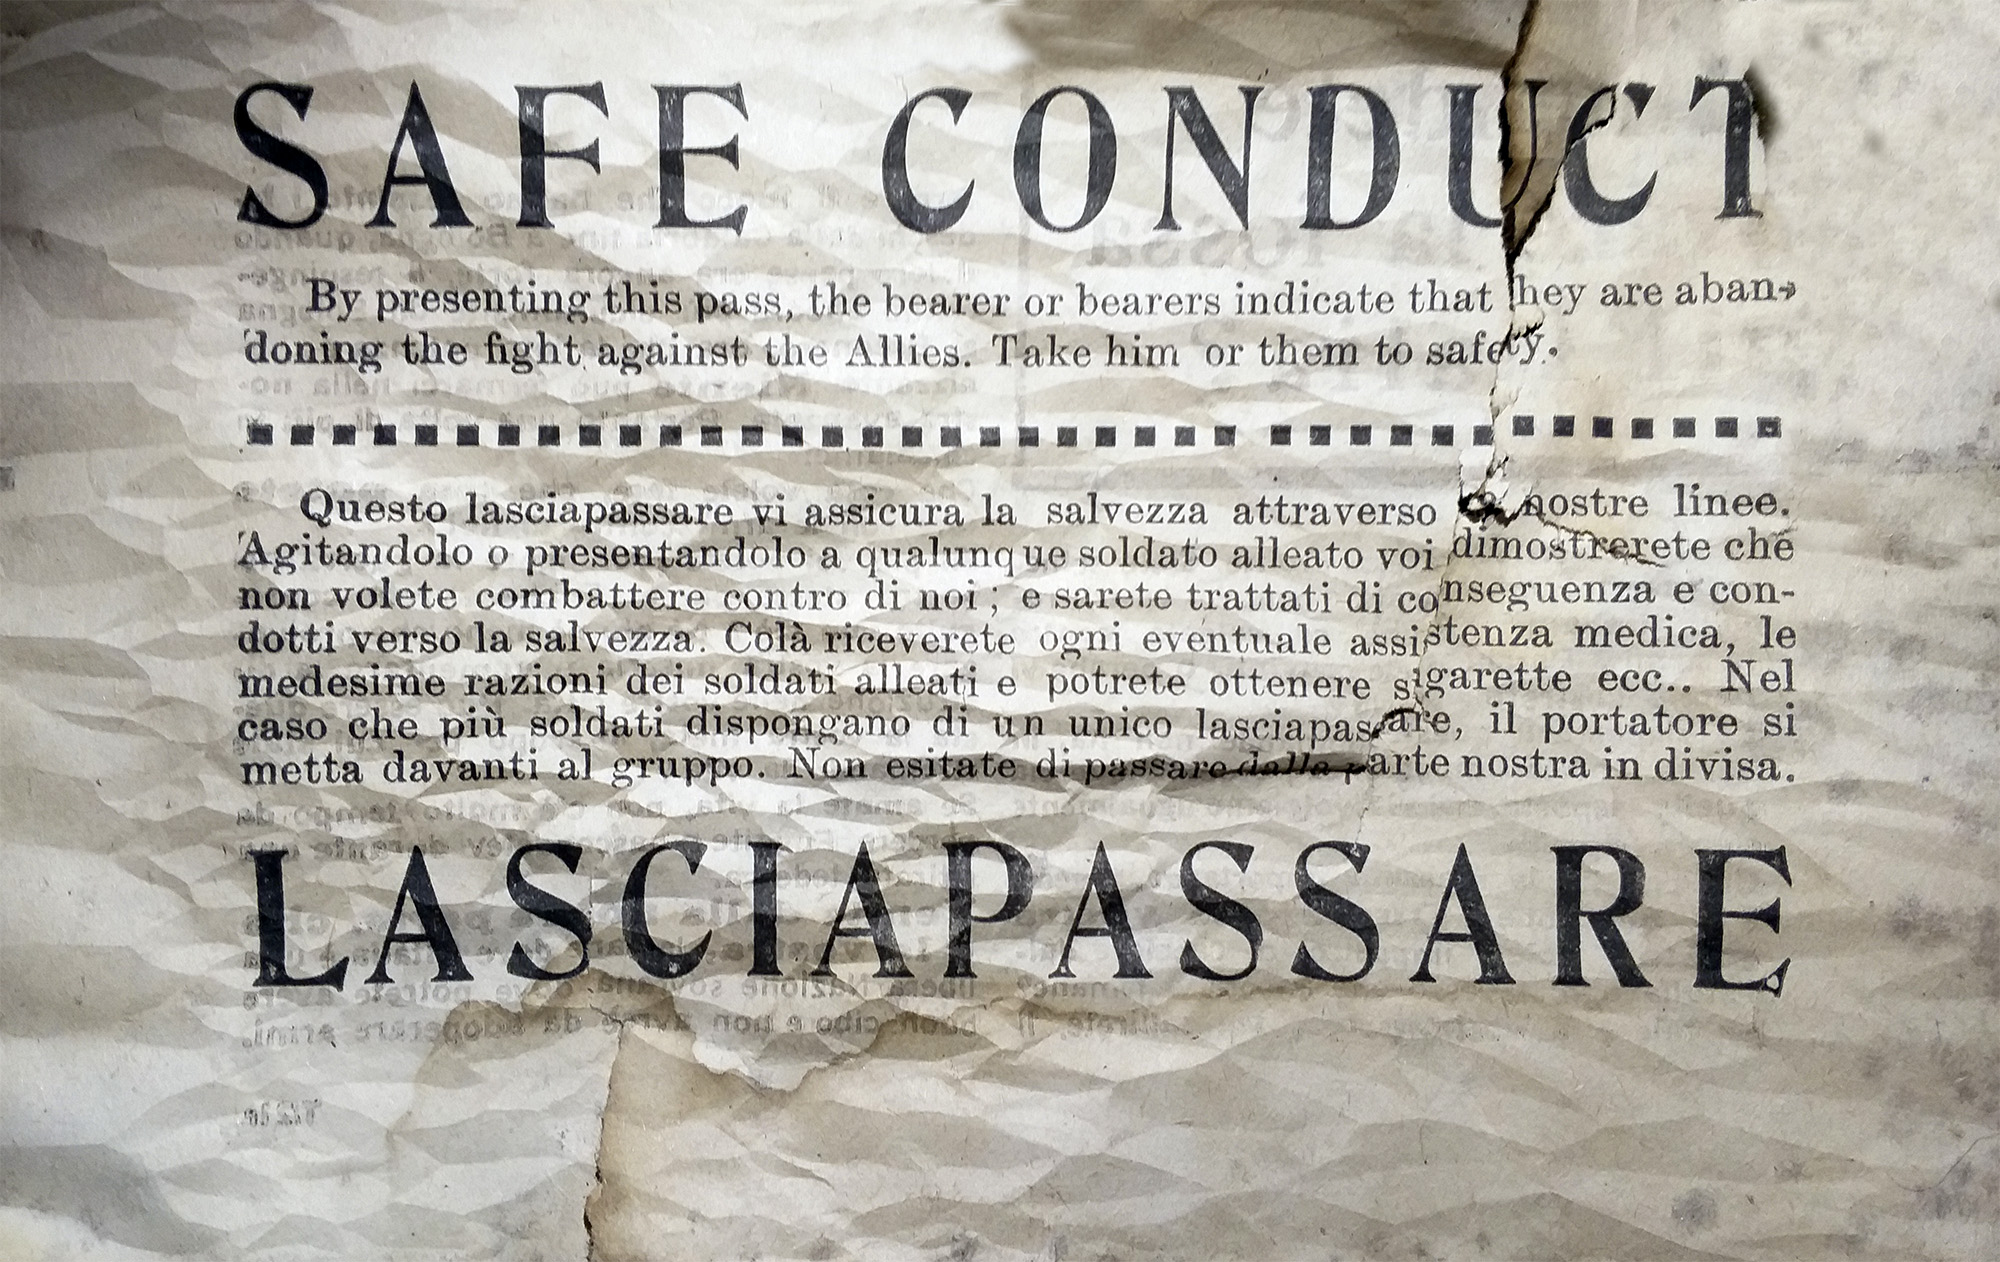 SAFE CONDUCT
By presenting this pass, the bearer or bearers indicate that they are aban-
doning the fight against the Allies. Take him or them to safety.
Questo lasciapassare vi assicura la salvezza attraverso nostre linee.
Agitandolo o presentandolo a qualunque soldato alleato voi dimostrerete che
non volete combattere contro di noi ; e sarete trattati di conseguenza e con-
dotti verso la salvezza. Colà riceverete ogni eventuale assistenza medica, le
medesime razioni dei soldati alleati e potrete ottenere sigarette ecc.. Nel
caso che più soldati dispongano di un unico lasciapassare, il portatore si
metta davanti al gruppo. Non esitate di passare dalla parte nostra in divisa.
LASCIAPASSARE